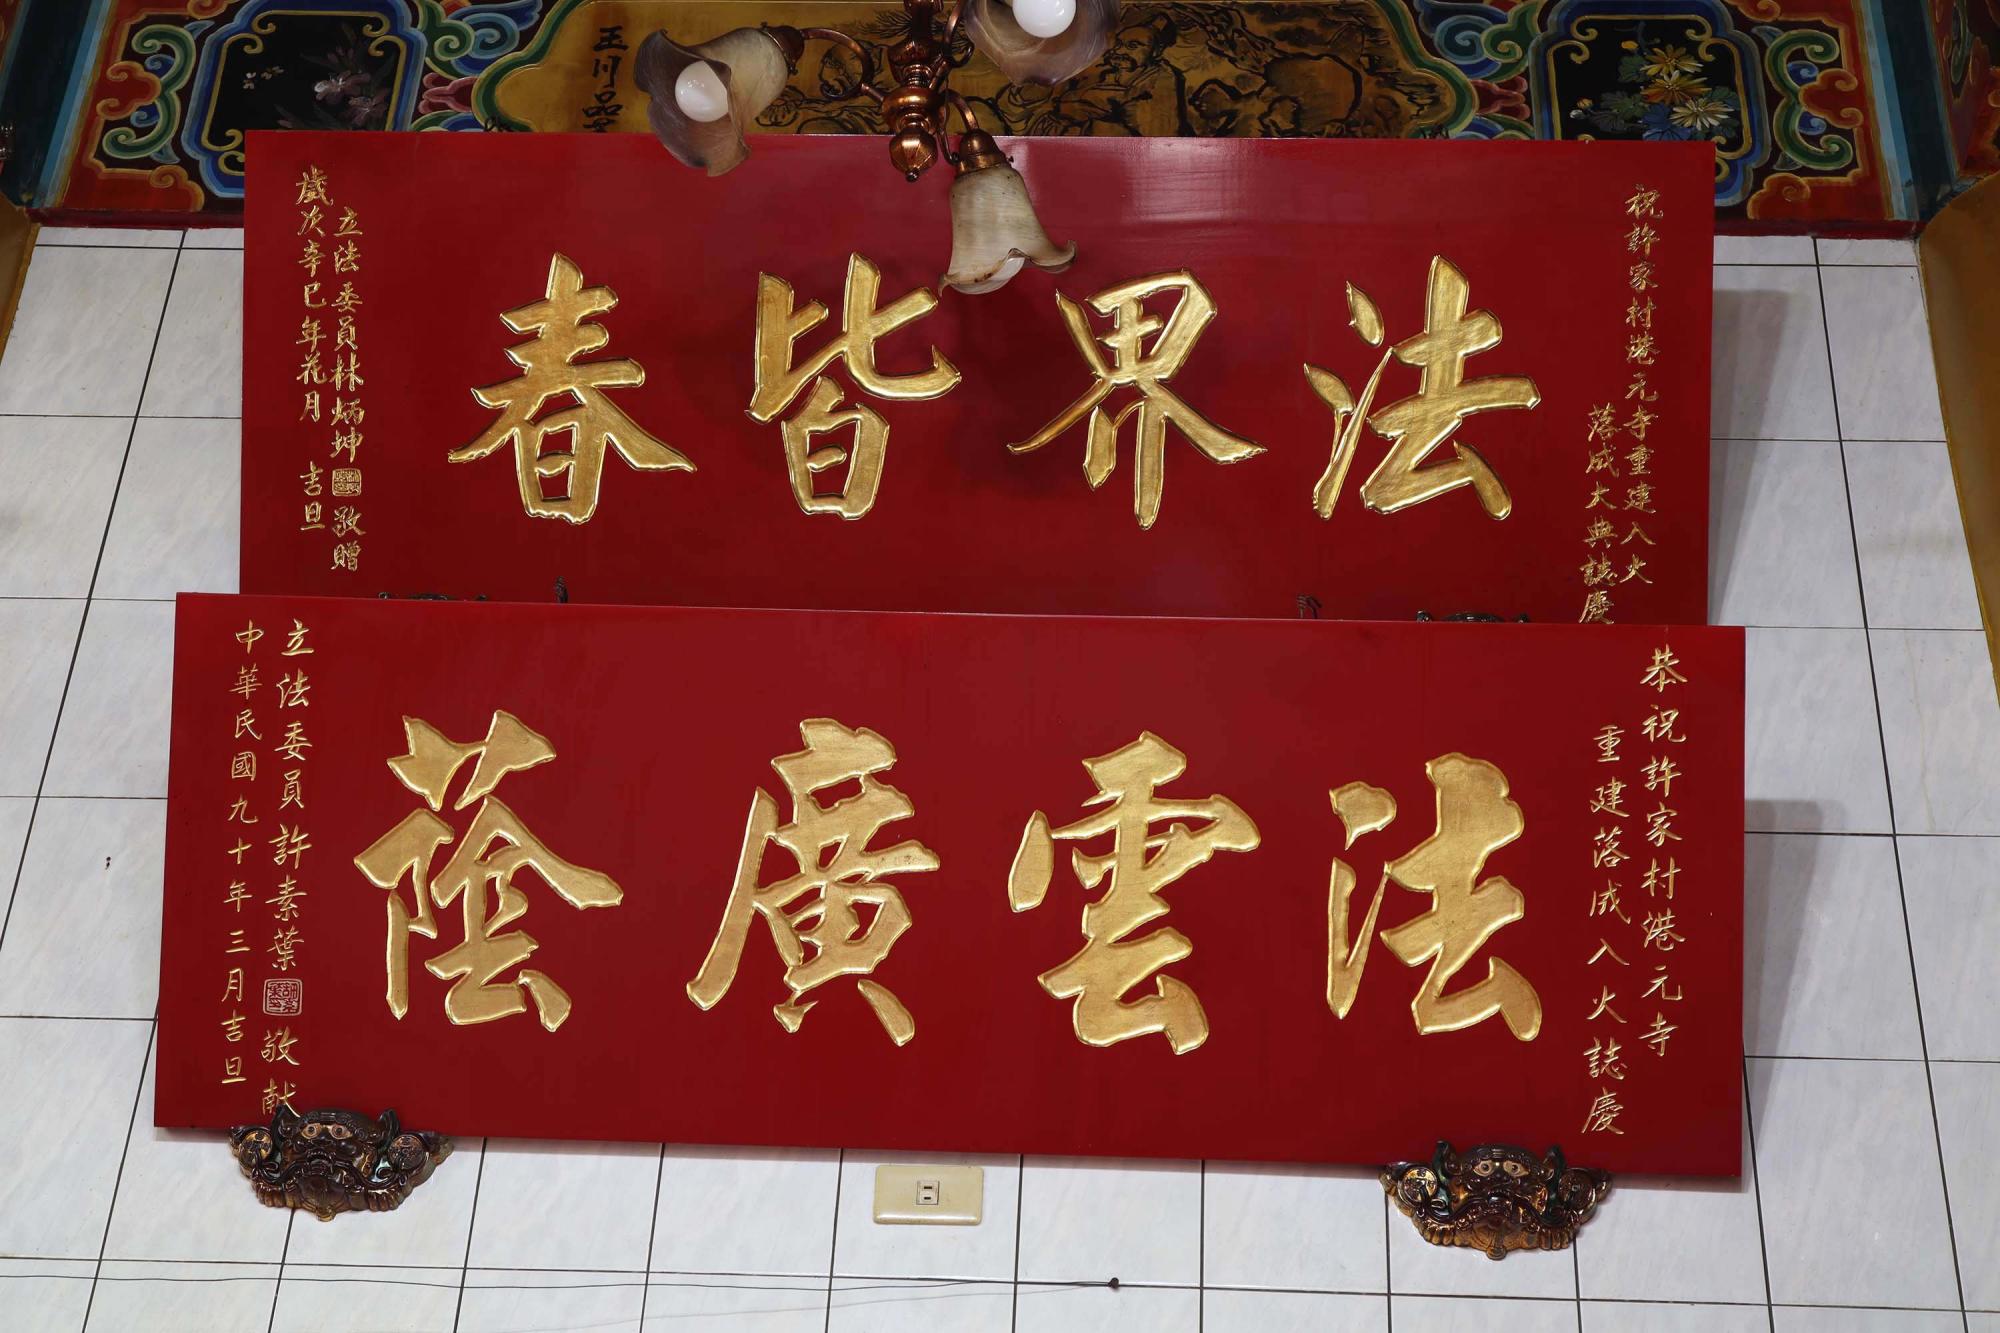 玉川品
祝許家村港元寺重建入火
落成大典誌慶
法界皆春
立法委員林炳坤敬贈
歲次辛巳年花月吉旦
恭祝許家村港元寺
重建落成入火誌慶
法雲廣蔭
立法委員許素葉敬献
中華民國九十年三月吉旦